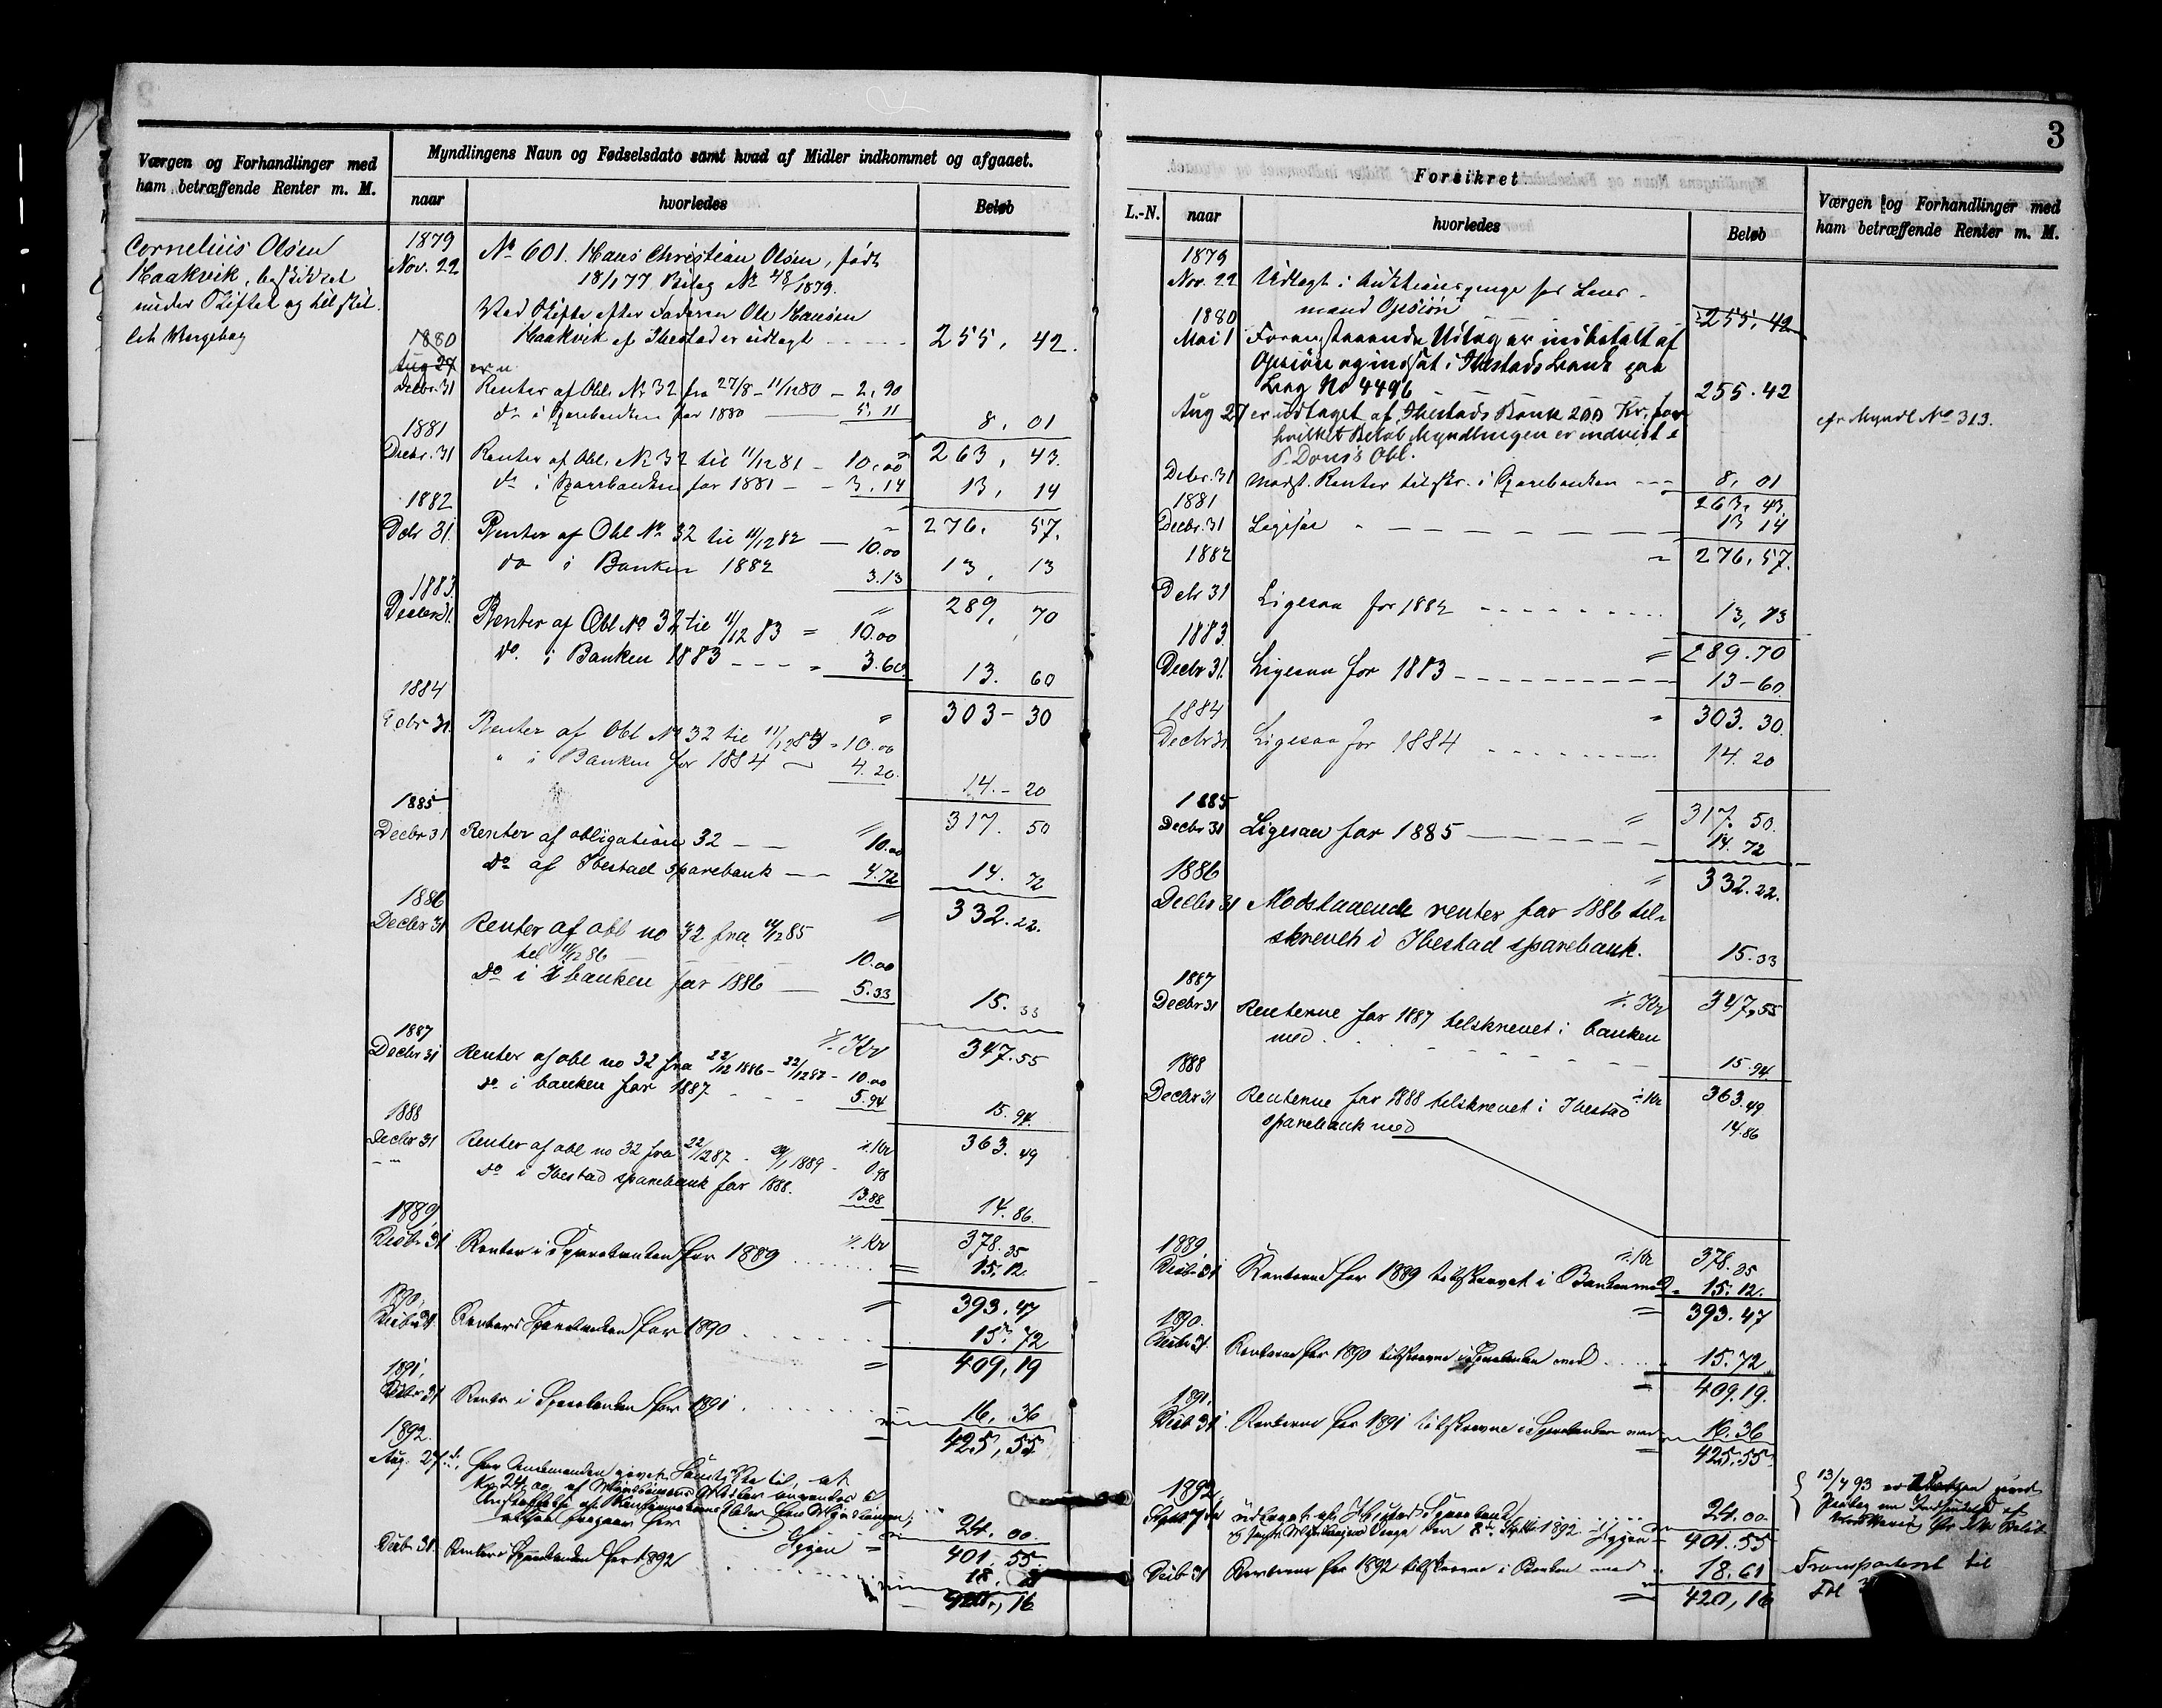 3
Værgen og Forhandlinger med
ham betræffende Renter m. M.
Myndlingens Navn og Fødselsdato samt hvad af Midler indkommet og afgaaet.
naar
hvorledes
Beløb
Cornelius Olsen
Haakvik, beskikket
under Skiftet og tilstil-
let Vergebog
1879
Nov. 22
No 601. Hans Christian Olsen, født
18/1 77 Bilag No 48/1879.
Ved Skifte efter Faderen Ole Hansen
Haakvik af Ibestad er udlagt - - - 255, 42.
1880
Aug 27
Decbr. 31 Renter af Obl. No 32 fra 27/8 - 11/12 80 - 2,90
do i Sparebanken for 1880 5,11 8,01
1881
Decbr. 31 Renter af Obl. No 32 til 11/12 81 - 10,00 263, 43.
do i Sparebanken for 1881 - - 3.14 13, 14
1882
Decbr 31. Renter af Obl No 32 til 11/12 82 - 10.00 276. 57.
do i Banken 1882 3.13 13, 13
1883.
Decbr 31. Renter af Obl No 32 til 11/12 83 = 10.00 289, 70
do. i Banken 1883 - - - 3.60 13. 60
1884
Decbr 31. Renter af Obl No 32 til 11/12 84 - 10.00 303 - 30
" i Banken for 1884 4.20. 14. - 20
1885
Decbr 31 Renter af obligation 32 - - 10.00 317. 50
do af Ibestad sparebank - - 4.72 14. 72
1886
Decbr 31 Renter af obl no 32 fra 11/12 85 332. 22.
til 11/12 86 - - - 10.00
do i banken for 1886 - 5.33 15. 33
1887
Decbr 31 Renter af obl no 32 fra 22/12 1886 - 22/12 87 - 10.00 Kr 347.55
do i banken for 1887 - - - 5.94 15.94.
1888
Decbr 31 Renter af obl no 32 fra 22/12 87 - 29/1 1889 - 0.98 Kr 363.49
do i Ibestad sparebank for 1888. 13.88 14.86.
1889
Decbr 31 Renter i Sparebanken for 1889 Kr 378.35
15.12.
1890.
Decbr 31. Renter i Sparebanken for 1890 393.47
15.72
1891.
Decbr 31 Renter i Sparebanken for 1891 409,19
16,36
1892. 425,55
Aug. 27de. har Amtmanden givet Samtykke til, at
Kr 24,00 af Myndlingens Midler anvendes til
Anskaffelse af Konfirmationsklæder for Myndlingen,
altsaa fragaar her 24.00
401.55.
Decbr 31. Renter i Sparebanken for 1892 18.
420,16
Forsikret
L.-N.
naar
hvorledes
Beløb
Værgen og Forhandlinger med
ham betræffende Renter m. M.
1879
Nov. 22 Udlagt i Auktionspenge hos Lens-
mand Opsiøn 255,42
1880
Mai 1 Foranstaaende Udlæg er indbetalt af
Opsiøn og indsat i Ibestads Bank paa
Bog No 4496 255.42
Aug 27 er udtaget af Ibestads Bank 200 Kr. for
hvilket Beløb Myndlingen er indvist i
Obl.
cfr Myndl No 313.
Decbr. 31 Modst. Renter tilskr. i Sparebanken - - - 8,01
1881 263,43
Decbr. 31 Ligesaa - - - 13 14
1882 276,57.
Decbr 31 Ligesaa for 1882 - - - 13,13
1883. 289.70
Decbr 31. Ligesaa for 1883 - - - 13 - 60
1884 303.30.
Decbr 31 Ligesaa for 1884 - - - 14.20
1885 317.50.
Decbr 31 Ligesaa for 1885 - - - 14.72
1886 332.22.
Decbr 31 Modstaaende renter for 1886 til-
skrevet i Ibestad sparebank. 15.33
1887 Kr 347.55
Decbr 31 Renterne for 1887 tilskrevet i banken
med - - - 15.94
1888 Kr 363.49
Decbr 31 Renterne for 1888 tilskrevet i Ibestad
sparebank med 14.86
1889 Kr 378.35
Decbr 31 Renterne for 1889 tilskrevet i Banken med 15.12.
1890. 393.47
Decbr 31. Renterne for 1890 tilskrevne i Sparebanken med 15.72
1891. 409.19.
Decbr 31. Renterne for 1891 tilskrevne i Sparebanken med 16.36
425.55
1892
Septbr udtaget af Ibestads Sparebank 24.00
den 8de Septbr 1892 401.55
Decbr 31 Renterne for 1892 tilskrevne i Banken med 18.61
420,16
13/4 93 er Værgen
Transporteret til
Fol